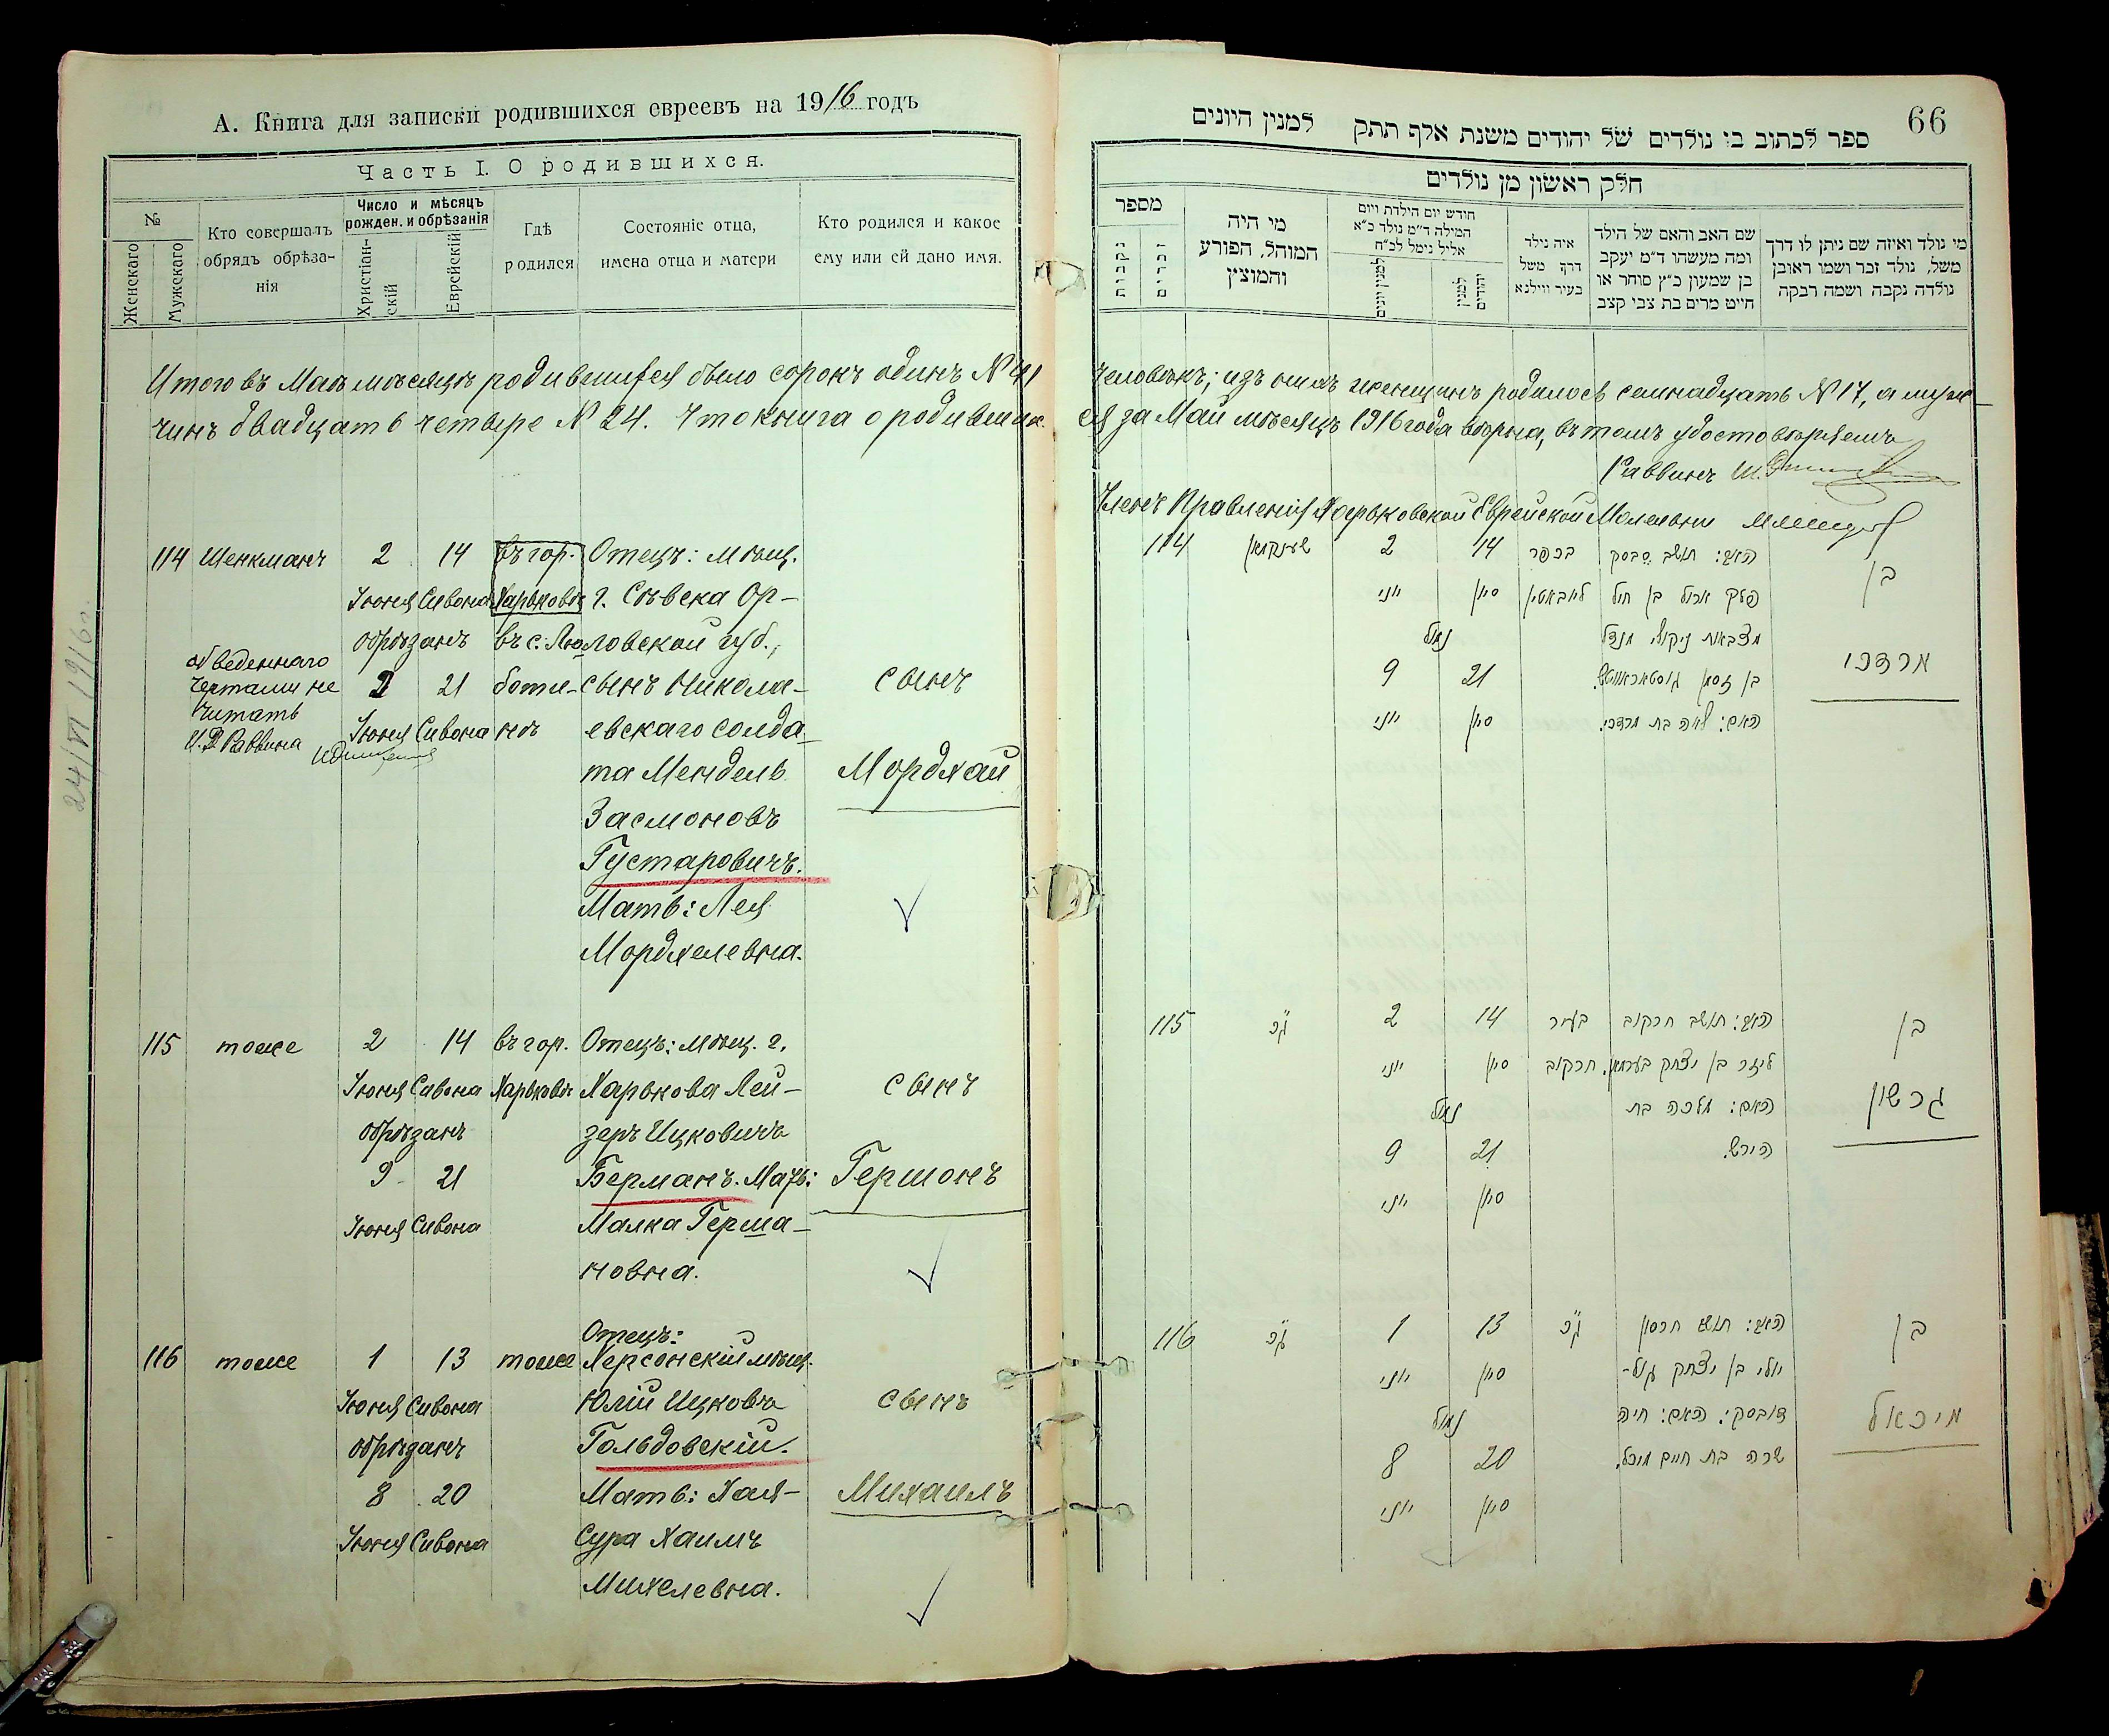 А. Книга для записки родившихся евреевъ на 1916 годъ
Часть I. О родившихся.
№
Женскаго
Мужескаго
Кто совершалъ
обрядъ обрѣза-
нія
Число и мѣсяцъ
рожден. и обрѣзанія
Христіан-
скій
Еврейскій
Гдѣ
родился
Состояніе отца,
имена отца и матери
Кто родился и какое
ему или ей дано имя.
Итого въ Маѣ мѣсяцѣ родившихся было сорокъ одинъ N 41
чинъ двадцать четыре N 24. Что книга о родивших
114 Шенкманъ 2 14 въ гор. Отецъ: Мѣщ.
Іюня Сивона Харьковѣ г. Сѣвска Ор-
обрѣзанъ въ с. Лю ловской губ.,
обведеннаго
чертами не
читать
И. Д. Раввина
9 21 боти- сынъ Никола- сынъ
Іюня Сивона нѣ евскаго солда-
та Мендель Мордхай
Засмоновъ
Густаровичъ.
Мать: Лея
Мордхелевна.
24/VI 1916 г.
115 тоже 2 14 въ гор. Отецъ: Мѣщ. г.
Іюня Сивона Харьковѣ Харькова Лей- сынъ
обрѣзанъ зеръ Ицковичъ
9 21 Берманъ. Мать: Гершонъ
Іюня Сивона Малка Герша-
новна.
Отецъ:
116 тоже 1 13 тоже Херсонскій мѣщ.
Іюня Сивона Юлій Ицковъ сынъ
обрѣзанъ Гольдовскій.
8 20 Мать: Хая- Михаилъ
Іюня Сивона Сура Хаимъ
Михелевна.
66
ספר לכתוב בו נולדים של יהודים משנת אלף תתק למנין היונים
חלק ראשון מן נולדים
מספר
נקבות
זכרים
מי היה
המוהל, הפורע
והמוצץ
חודש יום הילדת ויום
המילה ד״מ נולד כ״א
אליל נימל לכ״ח
למנין יונים
למנין
יהודים
איה נילד
דרך משל
בעיר ווילנא
שם האב והאם של הילד
ומה מעשהו ד״מ יעקב
בן שמעון כ״ץ סוחר או
חייט מרים בת צבי קצב
מי נולד ואיזה שם ניתן לו דרך
משל, נולד זכר ושמו ראובן
נולדה נקבה ושמה רבקה
человѣкъ; изъ оныхъ женщинъ родилось семнадцать N 17, а муж-
ся за Май мѣсяцъ 1916 года вѣрна, въ томъ удостовѣряемъ
Раввинъ
Членъ Правленія Харьковской Еврейской Молельни
114 שענקמאן 2 14 בכפר האב: תושב סבסק בן
יוני סיון ליובאטין פלך ארול בן חיל
נמול מצבאות ניקולי מנדל
9 21 בן זסמן גוסטאראוויטש. מרדכי
יוני סיון האם: לאה בת מרדכי.
115 כנ״ל 2 14 בעיר האב: תושב חרקוב בן
יוני סיון חרקוב ליזר בן יצחק בערמאן.
נמול האם: מלכה בת גרשון
9 21 הירש.
יוני סיון
116 כנ״ל 1 13 כנ״ל האב: תושב חרסון בן
יוני סיון יולי בן יצחק גול-
נמול דובסקי. האם: חיה מיכאל
8 20 שרה בת חיים מיכל.
יוני סיון